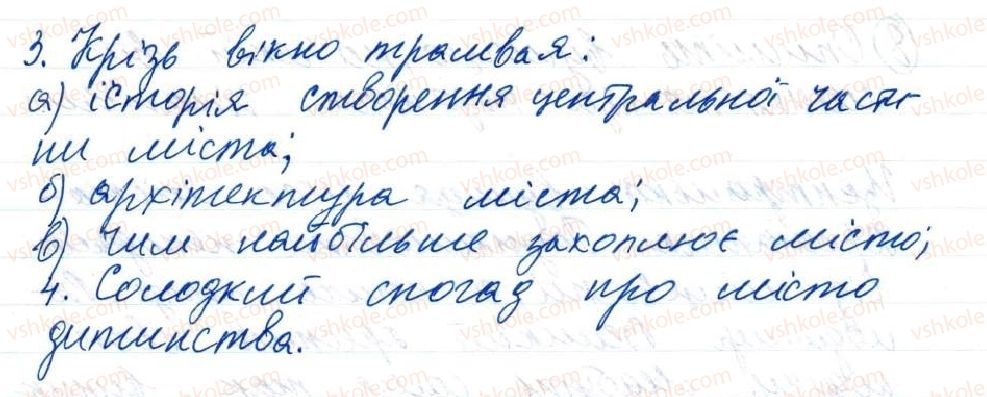 3. Крізь вікно трамвая:
а) історія створення центральної части-
ни міста;
б) архітектура міста;
в) чим найбільше захоплює місто;
4. Солодкий спогад про місто
дитинства.